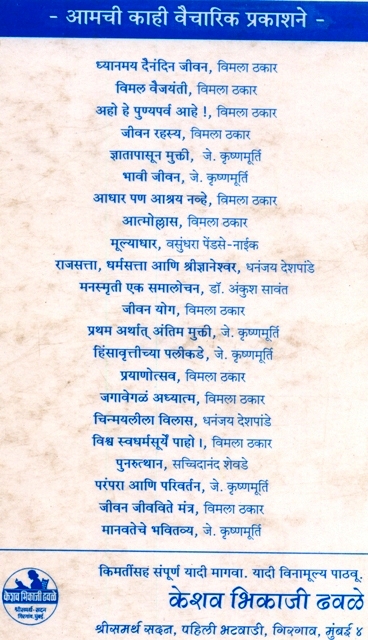 - आमची काही वैचारिक प्रकाशने -
ध्यानमय दैनंदिन जीवन, विमला ठकार
विमल वैजयंती, विमला ठकार
अहो हे पुण्यपर्व आहे !, विमला ठकार
जीवन रहस्य, विमला ठकार
ज्ञातापासून मुक्ती, जे. कृष्णमूर्ति
भावी जीवन, जे. कृष्णमूर्ति
आधार पण आश्रय नव्हे, विमला ठकार
आत्मोल्लास, विमला ठकार
मूल्याधार, वसुंधरा पेंडसे-नाईक
राजसत्ता, धर्मसत्ता आणि श्रीज्ञानेश्वर, धनंजय देशपांडे
मनस्मृती एक समालोचन, डॉ. अंकुश सावंत
जीवन योग, विमला ठकार
प्रथम अर्थात् अंतिम मुक्ती, जे. कृष्णमूर्ति
हिंसावृत्तीच्या पलीकडे, जे. कृष्णमूर्ति
प्रयाणोत्सव, विमला ठकार
जगावेगळं अध्यात्म, विमला ठकार
चिन्मयलीला विलास, धनंजय देशपांडे
विश्व स्वधर्मसूर्यें पाहो।, विमला ठकार
पुनरुत्थान, सच्चिदानंद शेवडे
परंपरा आणि परिवर्तन, जे. कृष्णमूर्ति
जीवन जीवविते मंत्र, विमला ठकार
मानवतेचे भवितव्य, जे. कृष्णमूर्ति
किमतींसह संपूर्ण यादी मागवा. यादी विनामूल्य पाठवू.
केशव भिकाजी ढवळे
श्रीसमर्थ सदन, पहिली भटवाडी, गिरगाव, मुंबई ४
केशव भिकाजी ढवळे
श्रीसमर्थ-सदन
गिरगांव, मुंबई